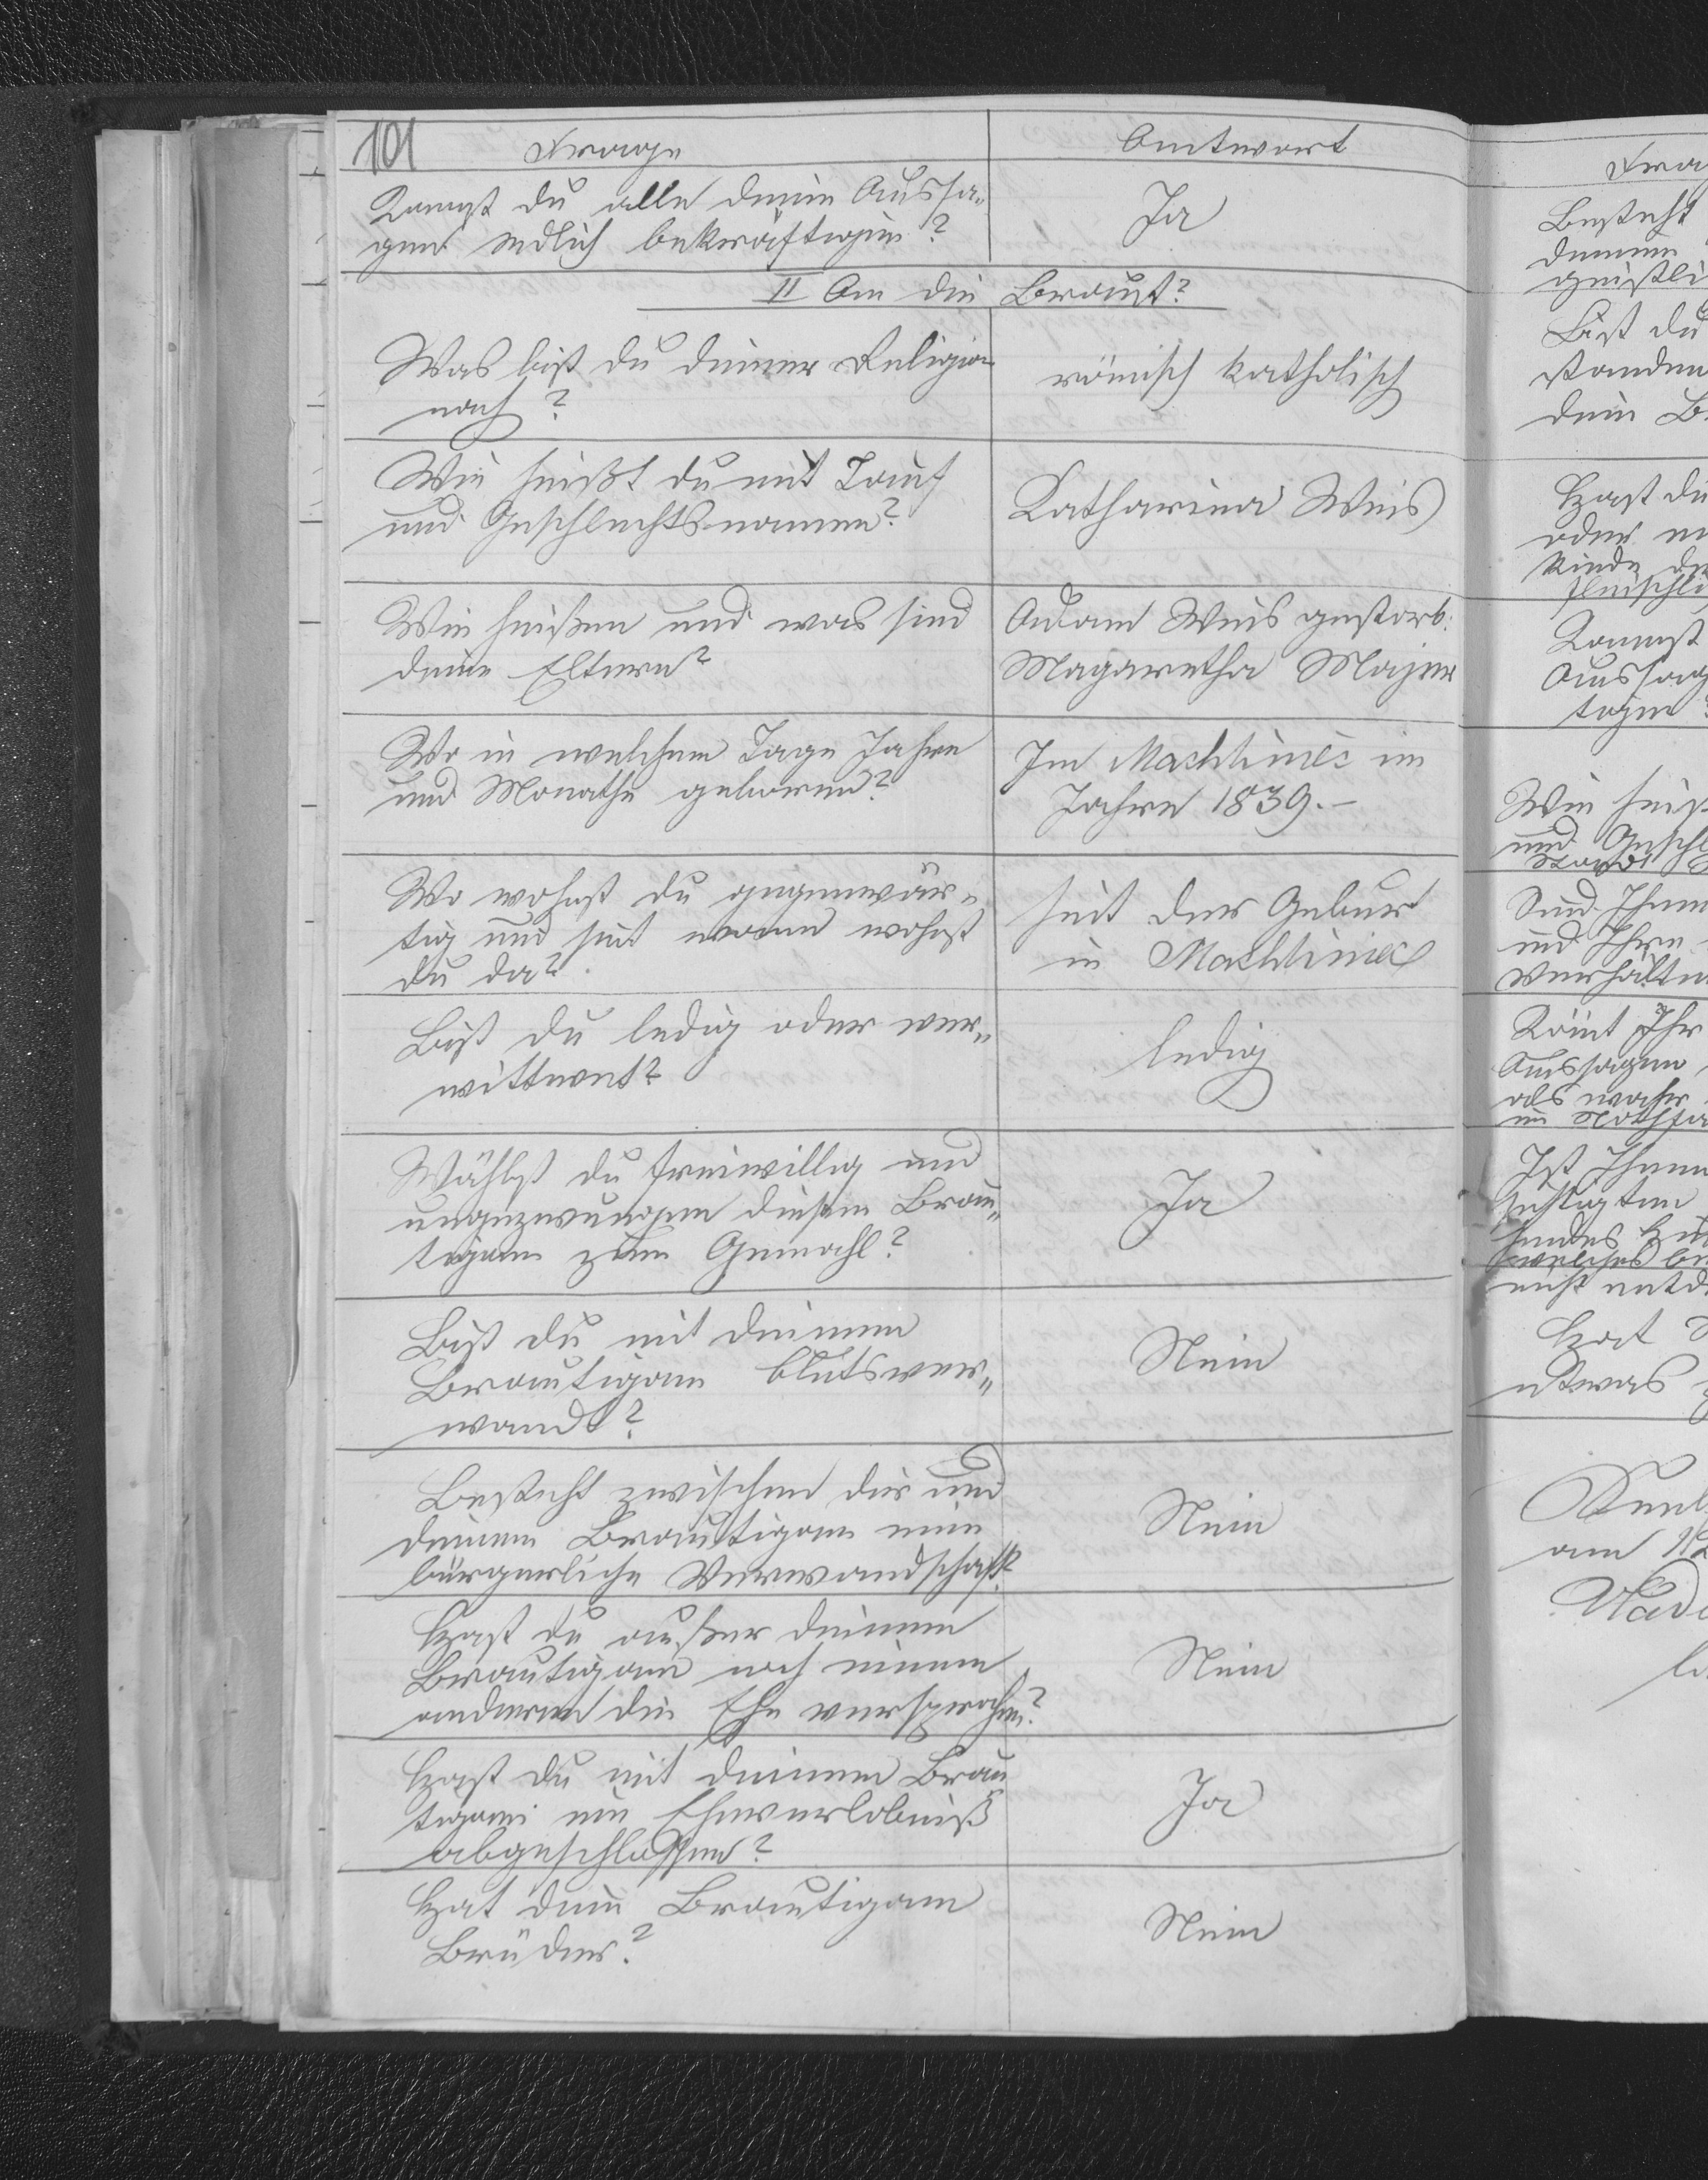 101
Frage
Antwort
Kannst du alle deine Aussa„
gen eidlich bekräftigen?
Ja
II An die Braut?
Was bist du deiner Religion
nach?
römisch katholisch
Wie heißt du mit Tauf
und Geschlechtsnamen?
Katharina Weis
Wie heißen und was sind
deine Eltern?
Adam Weis gestorb.
Magaretha Majer
Wo in welchem Tage Jahre
und Monathe geboren?
In Machlinec im
Jahre 1839.-
Wo wohnst du gegenwär„
tig und seit wann wohnst
du da?
seit der Geburt
in Machlinec
Bist du ledig oder ver„
wittwet?
ledig
Wählst du freiwillig und
ungezwungen diesen Bräu„
tigam zum Gemahl?
Ja
Bist du mit deinem
Bräutigam blutsver„
wandt?
Nein
Besteht zwischen dir und
deinem Bräutigam eine
bürgerliche Verwandschaft?
Nein
Hast du außer deinem
Bräutigam noch einem
anderen die Ehe versprochen?
Nein
Hast du mit deinem Bräu„
tigam ein Eheverlobniß
abgeschlossen?
Ja
Hat dein Bräutigam
Brüder?
Nein
Besteht
deinem
geistli
Bist du
standen
dein B
Hast du
oder
Kinde
fleischli
Kannst
Aussag
tigen?
Wie heiß
und Geschl
Stand
Sind Ihnen
und Ihre
Verhältn
Könt Ihr
Aussagen
als wahr
im Nothfa
Ist Ihnen
welches be
nicht entd
Hat
etwas
am 12
Vad